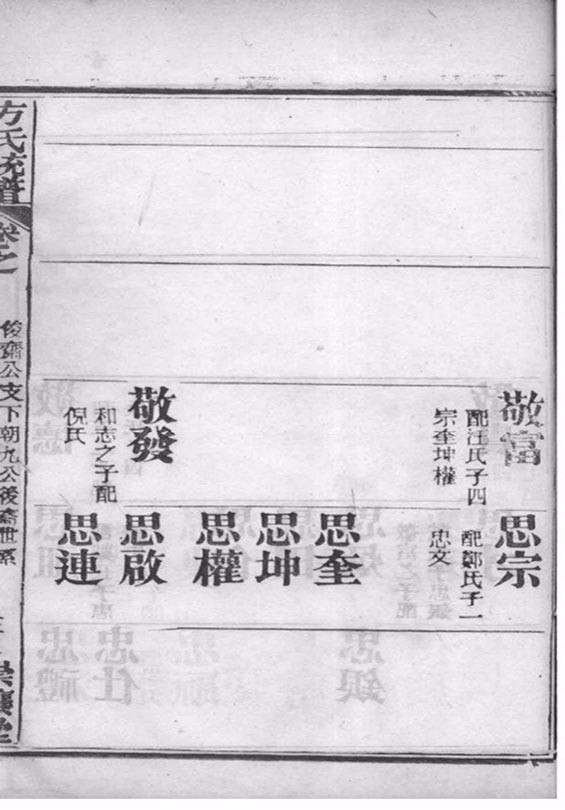 敬富
配汪氏子四
宗奎坤權
敬發
和志之子配
倪氏
思宗
配鄭氏子一
忠文
思奎
思坤
思權
思啟
思連
方氏統譜
卷之
俊齋公支下朝九公後裔世系